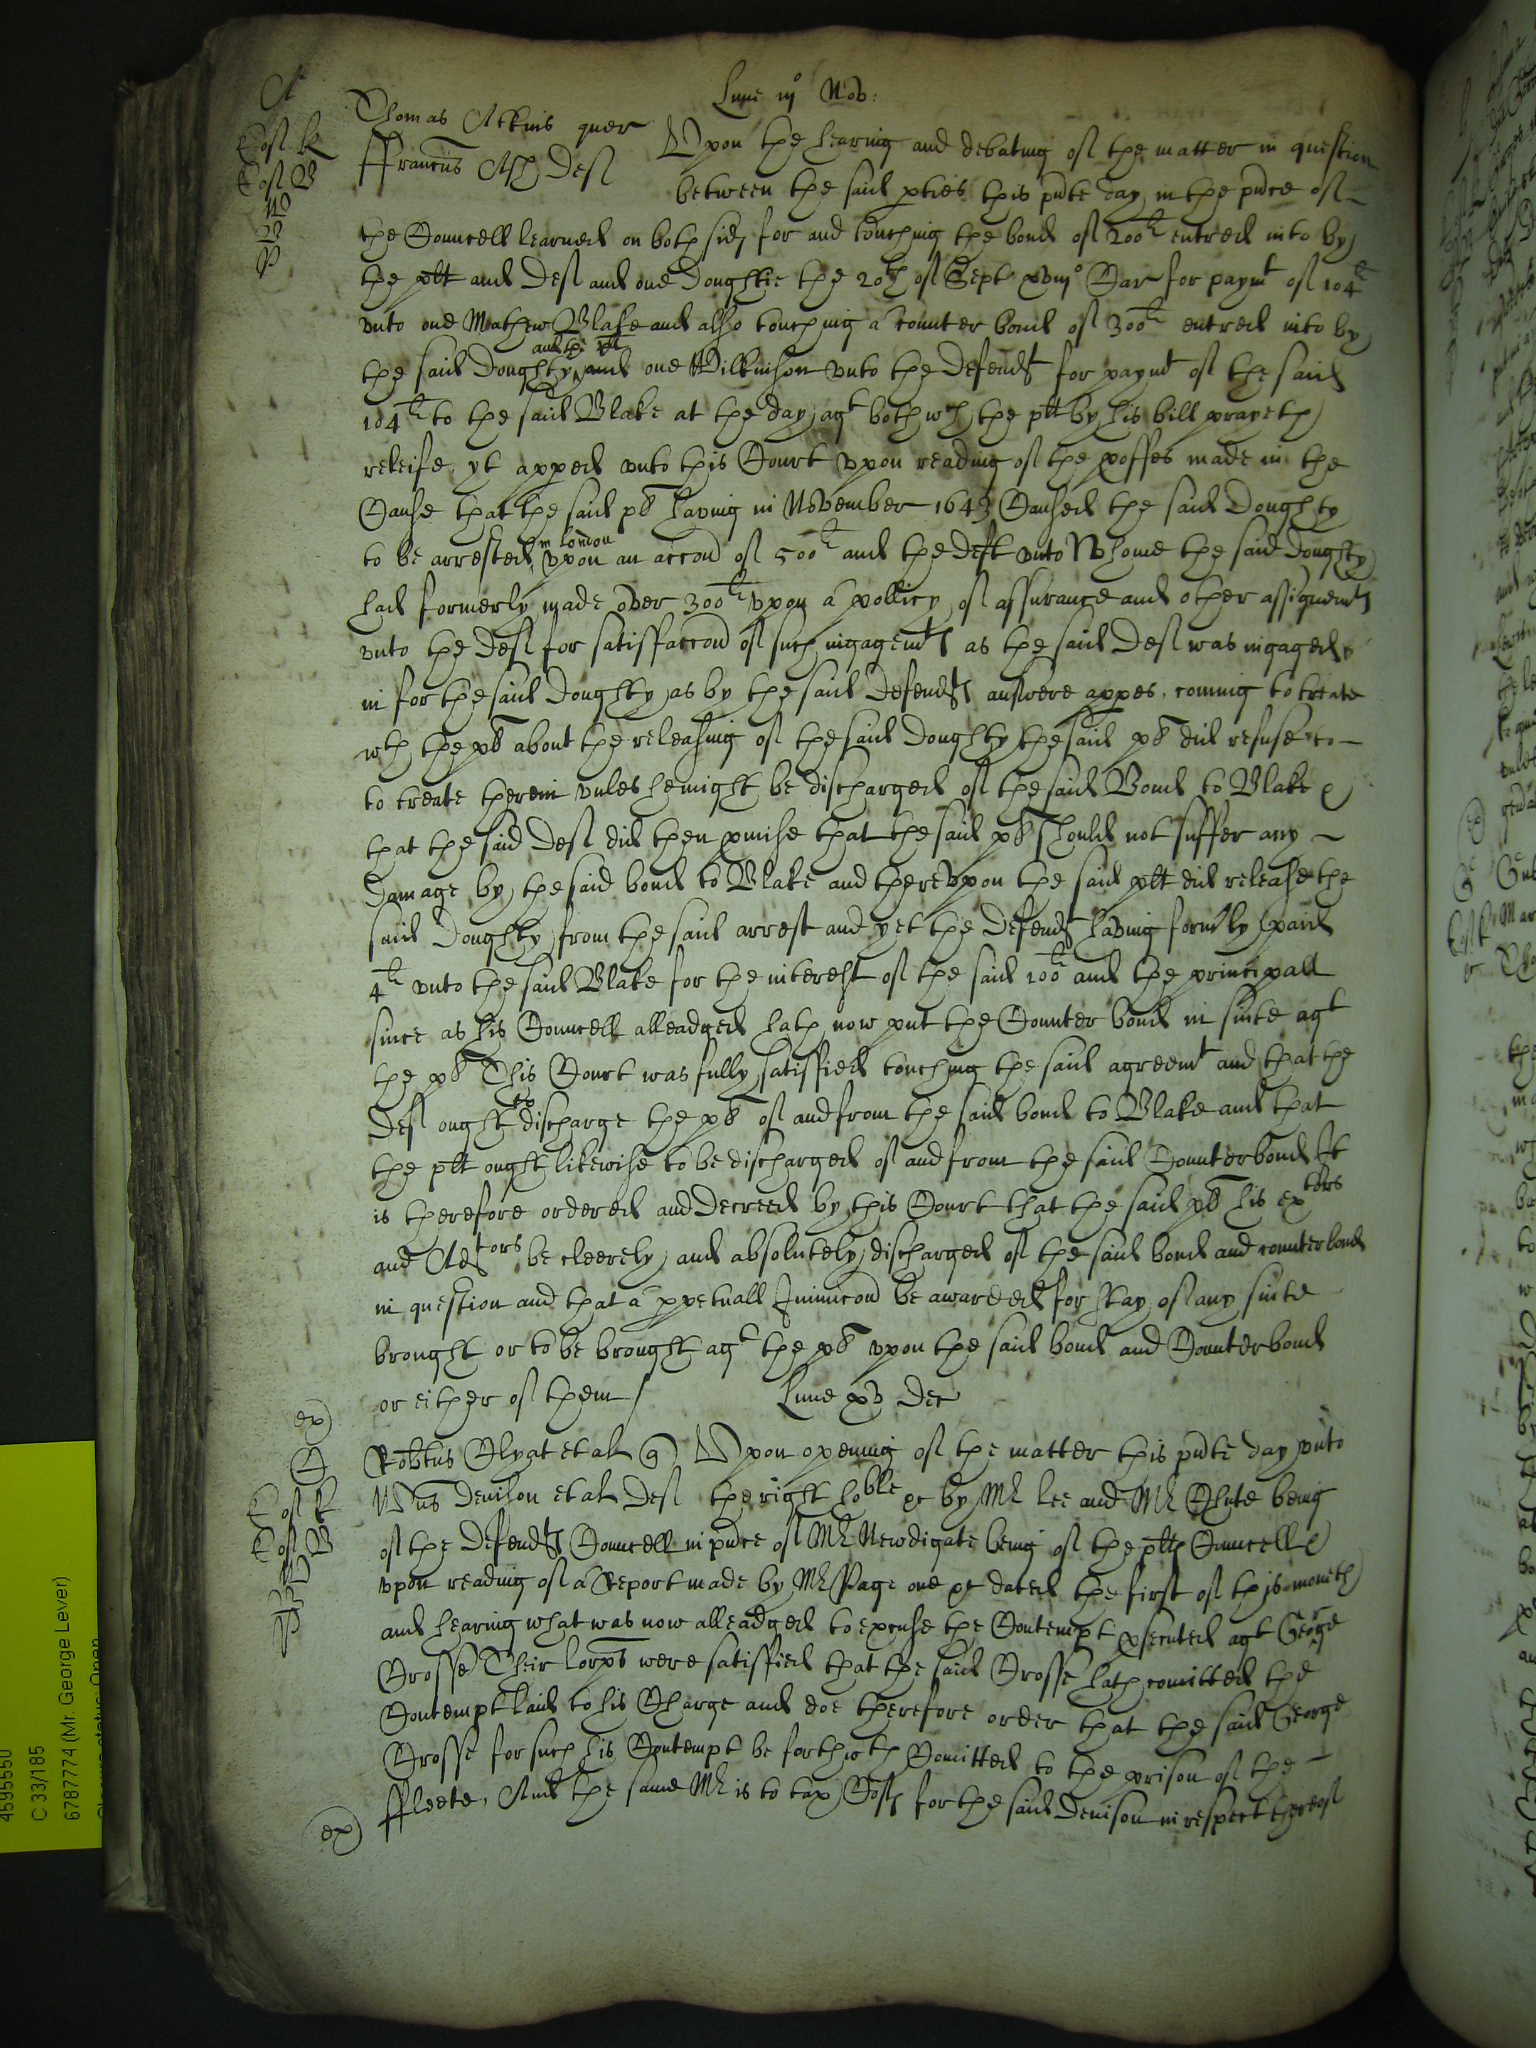 Lune iijº Nov:
A
Thomas Atkins quer
Cost k
ffrancus Ash Deft
Cost B
Upon the hearing and debating of the matter in question
between the said pties this pnte day in the pnce of
the Councell learned on both sids for and touching the bond of 200li entred into by
the plt and Deft and one Doughtie the 20th of Sept xviijº Car for paymt of 104li
unto one Mathew Blake and also touching a Counter bond of 300li entred into by
and the plt
the said Doughty and one Wilkinson unto the Defendt for paymt of the said
104li to the said Blake at the day agt both wch the plt by his bill prayeth
releife, yt appeed unto this Court upon reading of the proffes made in the
Cause that the said pl having in November 1643 Caused the said Doughty
in London
to be arrested upon an accon of 500li and the Deft unto Whome the said Doughty
had formerly made over 300li upon a pollicy of assurance and other assignemts
unto the Deft for satisfaccon of such ingagemts as the said Deft was ingaged
in for the said Doughty as by the said Defendts answere appes, coming to treate
wth the pl about the releasing of the said Doughty the said pl did refuse to
to treate therein unles he might be discharged of the said Bond to Blake &
that the said Deft did then pmise that the said pl should not suffer any
Damage by the said bond to Blake and thereupon the said plt did release the
said Doughty from the said arrest and yet the Defendt having formly paid
4li unto the said Blake for the interest of the said 100li and the principall
since as his Councell alleadged hath now put the Counter bond in suite agt
the pl This Court was fully satisfied touching the said agreemt and that the
to
Deft ought discharge the pl of and from the said bond to Blake and that
the plt ought likewise to be discharged of and from the said Counterbond It
is therefore ordered and Decreed by this Court that the said pl his extors
and Adtors be cleerely and absolutely discharged of the said bond and counterbond
in question and that a ppetuall Iniunccon be awarded for stay of any suite
brought or to be brought agt the pl upon the said bond and Counterbond
or either of them /
Lune xv Dec
ex)
Robtus Clyat et al q
Wms Denison et al Deft
Cost k
Cost B
Upon opening of the matter this pnte day unto
the right hoble &c by Mr Lee and Mr Chute being
of the Defendts Councell in pnce of Mr Newdigate being of the plts Councell &
upon reading of a Report made by Mr Page one &c dated the first of this moneth
and hearing what was now alleadged to excuse the Contempt psecuted agt George
Crosse Their Lorpps were satisfied that the said Crosse hath comitted the
Contempt laid to his Charge and doe therefore order that the said George
Crosse for such his Contempt be forthwth Comitted to the prison of the
ffleete, And the same Mr is to tax Costs for the said Denison in respect thereof
ex)
4595550
C 33/185
6787774 (Mr. George Lever)
Closure status: Open